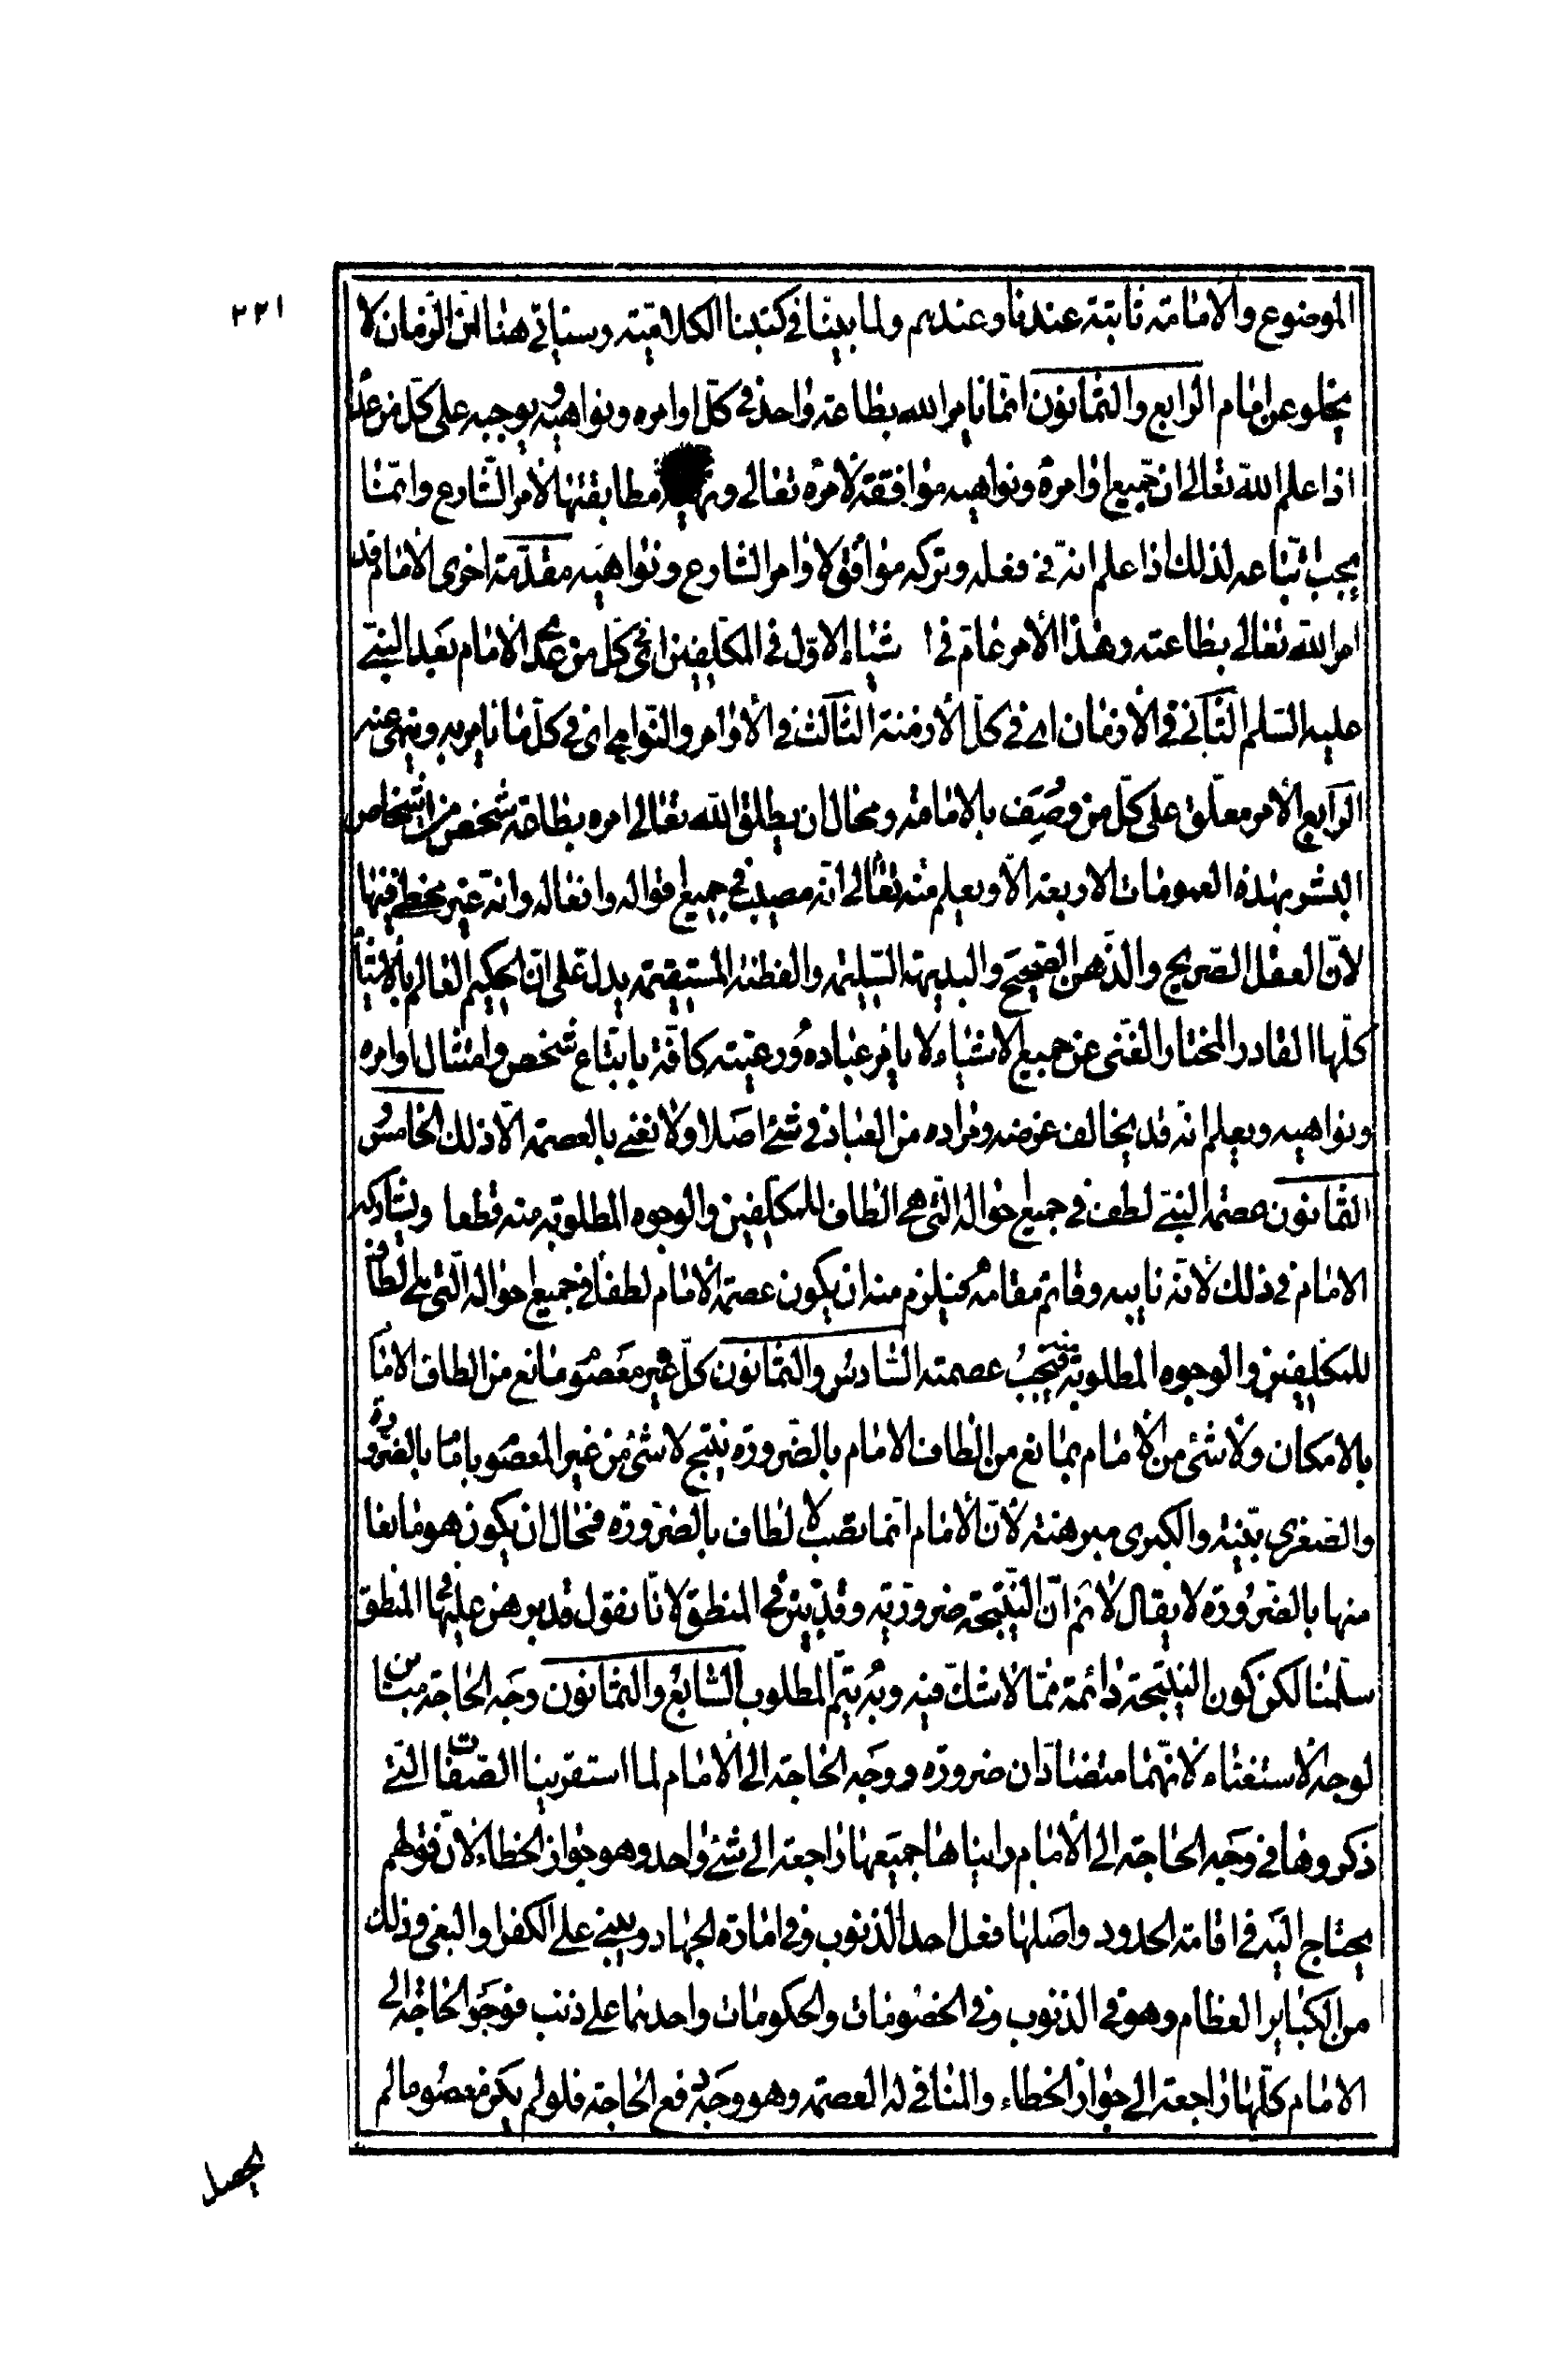 ٢٢١
الموضوع والامامة ثابتة عندنا وعندهم ولما بينا في كتبنا الكلامية وسياتي هنا ان الزمان لا
يخلو عن امام الرابع والثمانون انما يامر الله بطاعة واحد في كل اوامره ونواهيه ويوجبه على كل من عداه
اذا علم الله تعالى ان جميع اوامره ونواهيه موافقة لامره تعالى ونهيه مطابقتها لامر الشارع وانما
يجب اتباعه لذلك اذا علم انه في فعله وتركه موافق لاوامر الشارع ونواهيه مقدمة اخرى الامام قد
امر الله تعالى بطاعته وهذا الأمر عام في اشياء الاول في المكلفين اي كل من عدا الامام بعد النبي
عليه السلم الثاني في الازمان اى في كل الأزمنة الثالث في الأوامر والنواهي اى في كل ما يامر به وينهى عنه
الرابع الأمر معلق على كل من وصف بالامامة ومحال ان يطلق الله تعالى امره بطاعة شخص من اشخاص
البشر بهذه العمومات الاربعة الا ويعلم منه تعالى انه مصيب في جميع اقواله وافعاله وانه غير مخطئ فيها
لان العقل الصريح والذهن الصحيح والبديهة السليمة والفطنة المستقيمة يدل على ان الحكيم العالم بالاشياء
كلها القادر المختار الغنى عن جميع الاشياء لا يامر عباده ورعيته كافة باتباع شخص وامتثال اوامره
ونواهيه ويعلم انه قد يخالف غرضه ومراده من العباد في شئ اصلا ولا نعنى بالعصمة الا ذلك الخامس و
الثمانون عصمة النبي لطف في جميع احواله التى هي الطاف للمكلفين والوجوه المطلوبة منه قطعا ويشاركه
الامام في ذلك لانه نايبه وقائم مقامه فيلزم منه ان يكون عصمة الامام لطفا في جميع احواله التى هي الطاف
للمكلفين والوجوه المطلوبة منه فتجب عصمته السادس والثمانون كل غير معصوم مانع من الطاف الامام
بالامكان ولا شئ من الامام بمانع من الطاف الامام بالضرورة ينتج لا شئ من غير المعصوم بامام بالضرورة
والصغرى بينة والكبرى مبرهنة لان الامام انما نصب لالطاف بالضرورة فمحال ان يكون هو مانعا
منها بالضرورة لا يقال لا نم ان النتيجة ضرورية وقد بين في المنطق لانا نقول قد برهن عليها في المنطق
سلمنا لكن كون النتيجة دائمة مما لا شك فيه وبه يتم المطلوب السابع والثمانون وجه الحاجة مباين
لوجه الاستغناء لانهما متضادان ضرورة ووجه الحاجة الى الامام لما استقرينا الصفات التي
ذكروها في وجه الحاجة الى الأمام راينا ها جميعها راجعة الى شئ واحد وهو جواز الخطاء لان قولهم
يحتاج اليه في اقامة الحدود واصلها فعل احد الذنوب وفي امارة الجهاد ويبنى على الكفر او البغي وذلك
من الكباير العظام وهو في الذنوب وفي الخصومات والحكومات واحدهما على ذنب فوجوه الحاجة الى
الامام كلها راجعة الى جواز الخطاء والمنافي له العصمة وهو وجه رفع الحاجة فلو لم يكن معصوما لم
يحصل